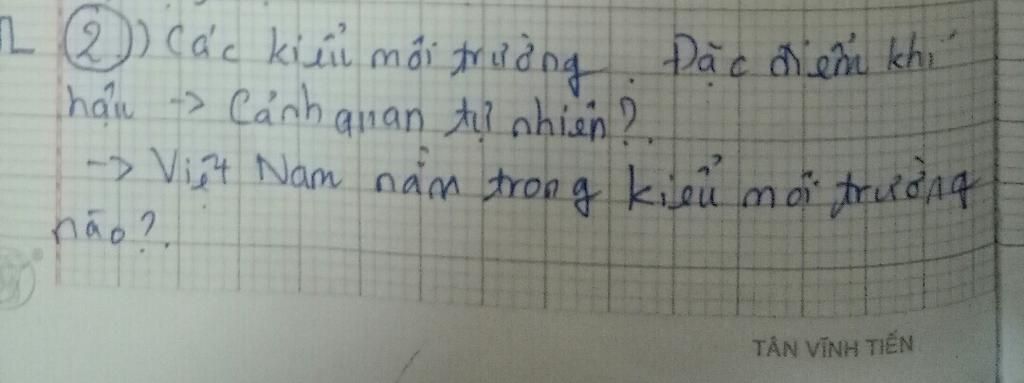 2)) Các kiểu môi trường. Đặc điểm khí
hậu -> Cảnh quan tự nhiên?.
-> Việt Nam nằm trong kiểu môi trường
nào?.
TÂN VĨNH TIẾN